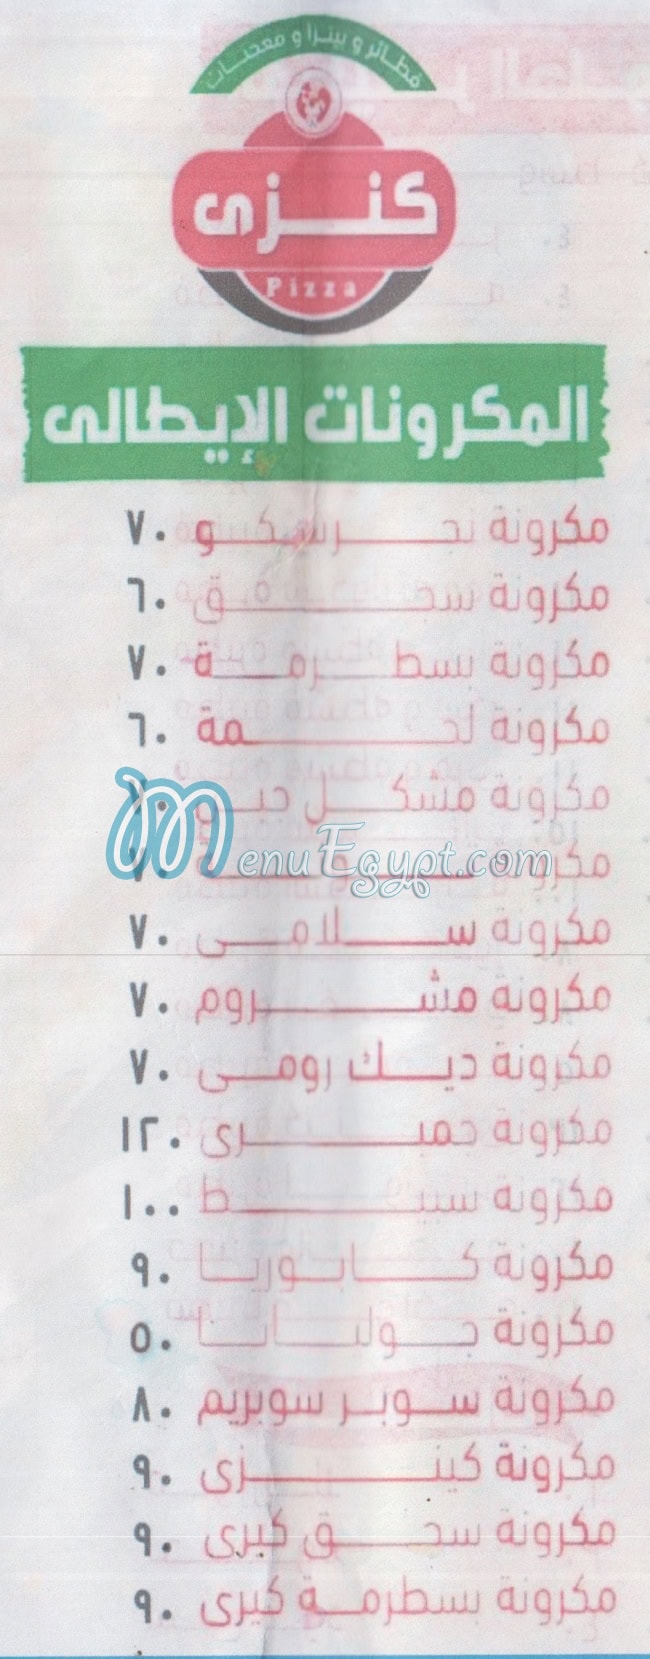 فطائر و بيتزا و معجنات
كنزى
Pizza
المكرونات الإيطالى
مكرونة نجرسكو ٧٠
مكرونة سجق ٦٠
مكرونة بسطرمة ٧٠
مكرونة لحمة ٦٠
مكرونة مشكل جبن
MenuEgypt.com
مكرونة ٧٠
مكرونة سلامى ٧٠
مكرونة مشروم ٧٠
مكرونة ديك رومى ٧٠
مكرونة جمبرى ١٢٠
مكرونة سبيط ١٠٠
مكرونة كابوريا ٩٠
مكرونة ٥٠
مكرونة سوبر سوبريم ٨٠
مكرونة كينزى ٩٠
مكرونة سجق كيرى ٩٠
مكرونة بسطرمة كيرى ٩٠